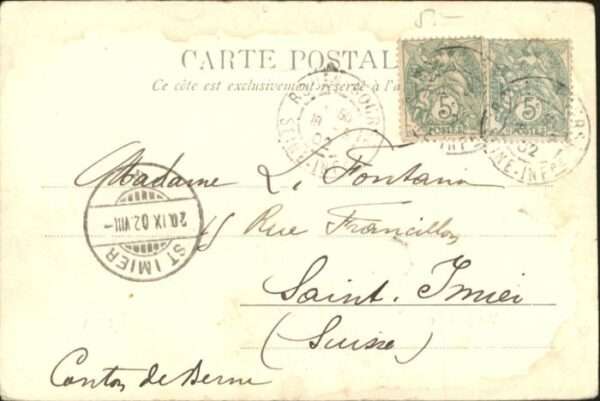 5.-
CARTE POSTAL
Ce côte est exclusivement réservé à l'a
5c 5c
POSTES POSTES
SEINE-INFRE
02
Madame L. Fontana
15 Rue Francillon
Saint. Imier
(Suisse)
Canton de Berne
ST IMIER
20.IX.02.VIII-